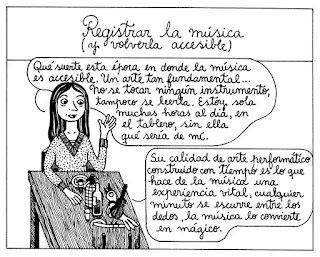 Registrar la música
(y volverla accesible)
Qué suerte esta época en donde la música
es accesible. Un arte tan fundamental...
no se tocar ningún instrumento,
tampoco se leerla. Estoy sola
muchas horas al día, en
el tablero, sin ella
qué sería de mí.
Su calidad de arte performático
construído con tiempo es lo que
hace de la música una
experiencia vital, cualquier
minuto se escurre entre los
dedos, la música lo convierte
en mágico.